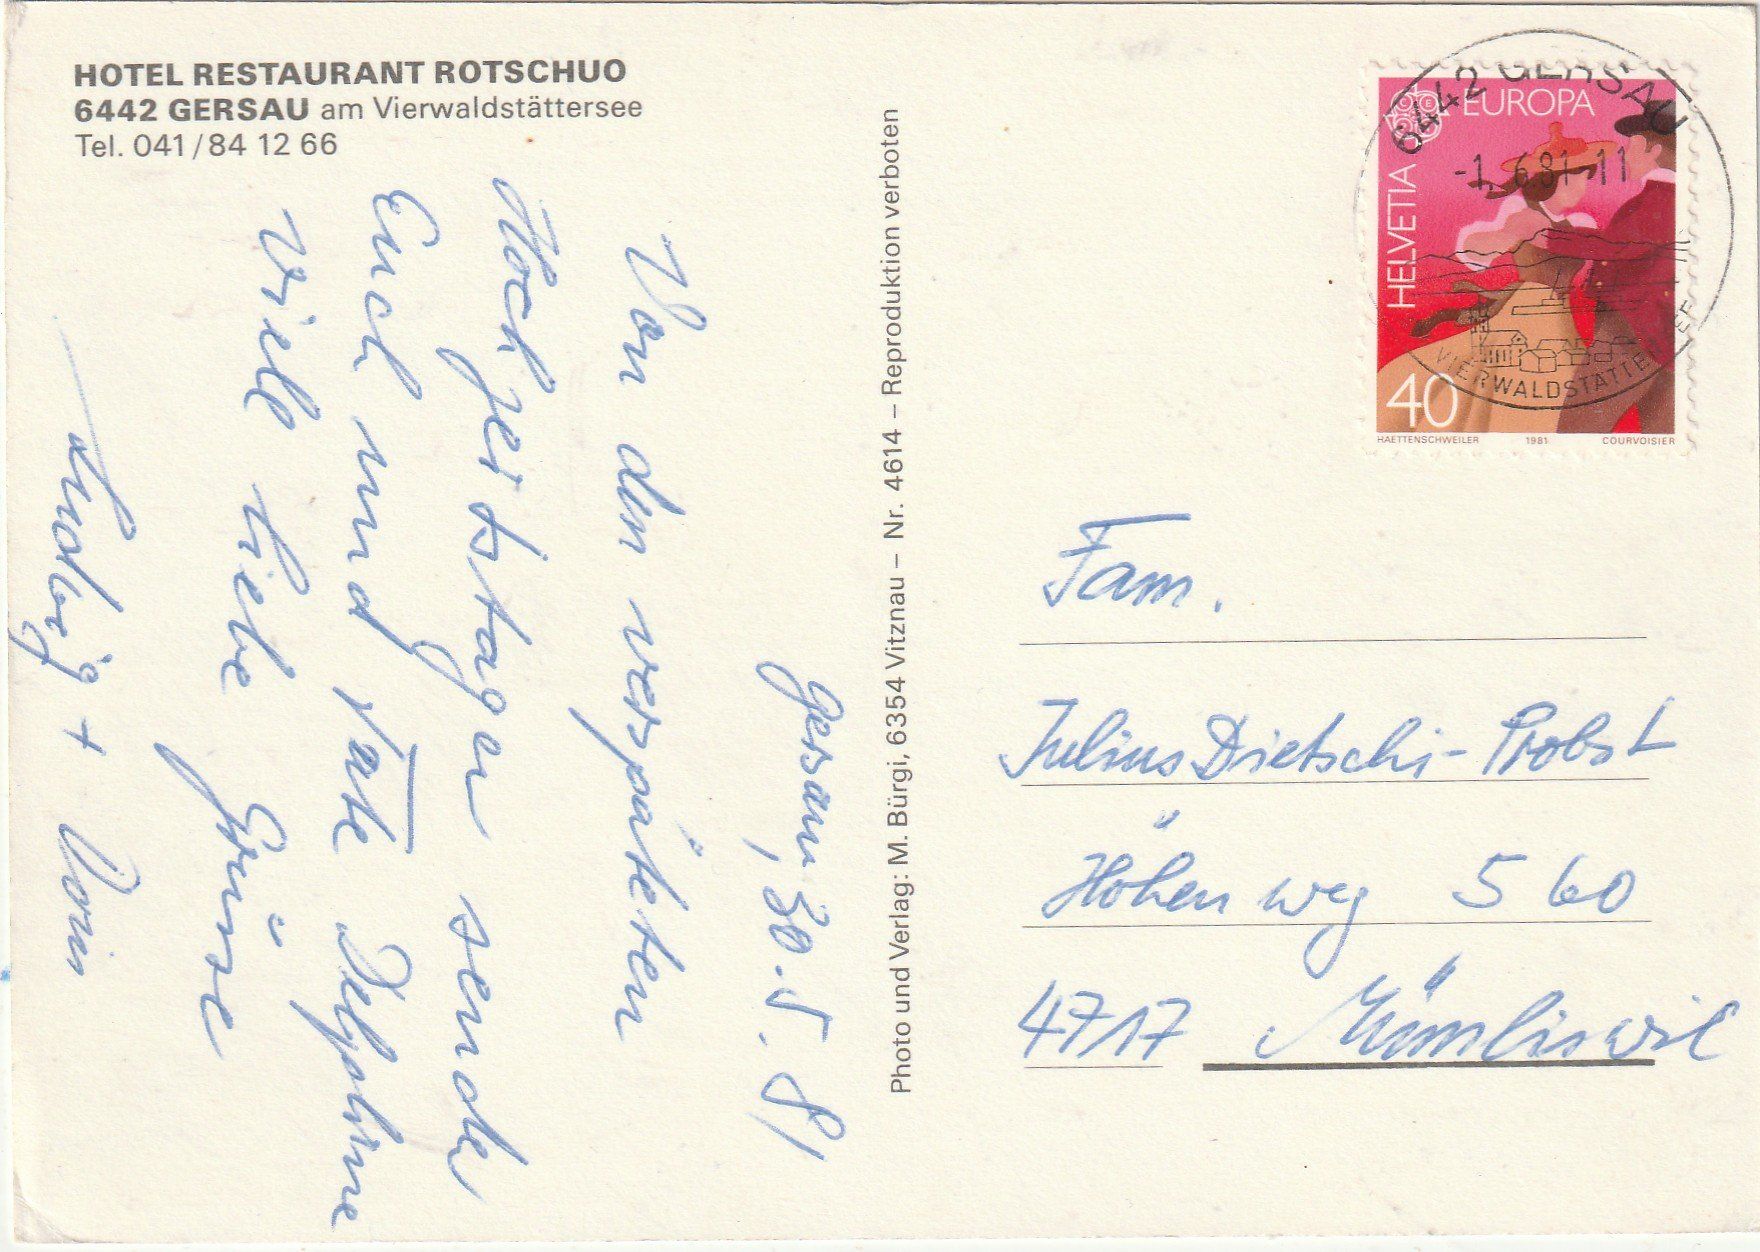 HOTEL RESTAURANT ROTSCHUO
6442 GERSAU am Vierwaldstättersee
Tel. 041/84 12 66
Gersau, 30.5.81
Von den verspäteten
Hochzeitstagen sendet
Euch und Tate Delphine
viele liebe Grüsse
Ludwig + Doris
Photo und Verlag: M. Bürgi, 6354 Vitznau – Nr. 4614 – Reproduktion verboten
6442 GERSAU
-1.6.81-11
VIERWALDSTÄTTERSEE
EUROPA
HELVETIA
40
HAETTENSCHWEILER 1981 COURVOISIER
Fam.
Julius Dietschi-Probst
Höhenweg 560
4717 Mümliswil